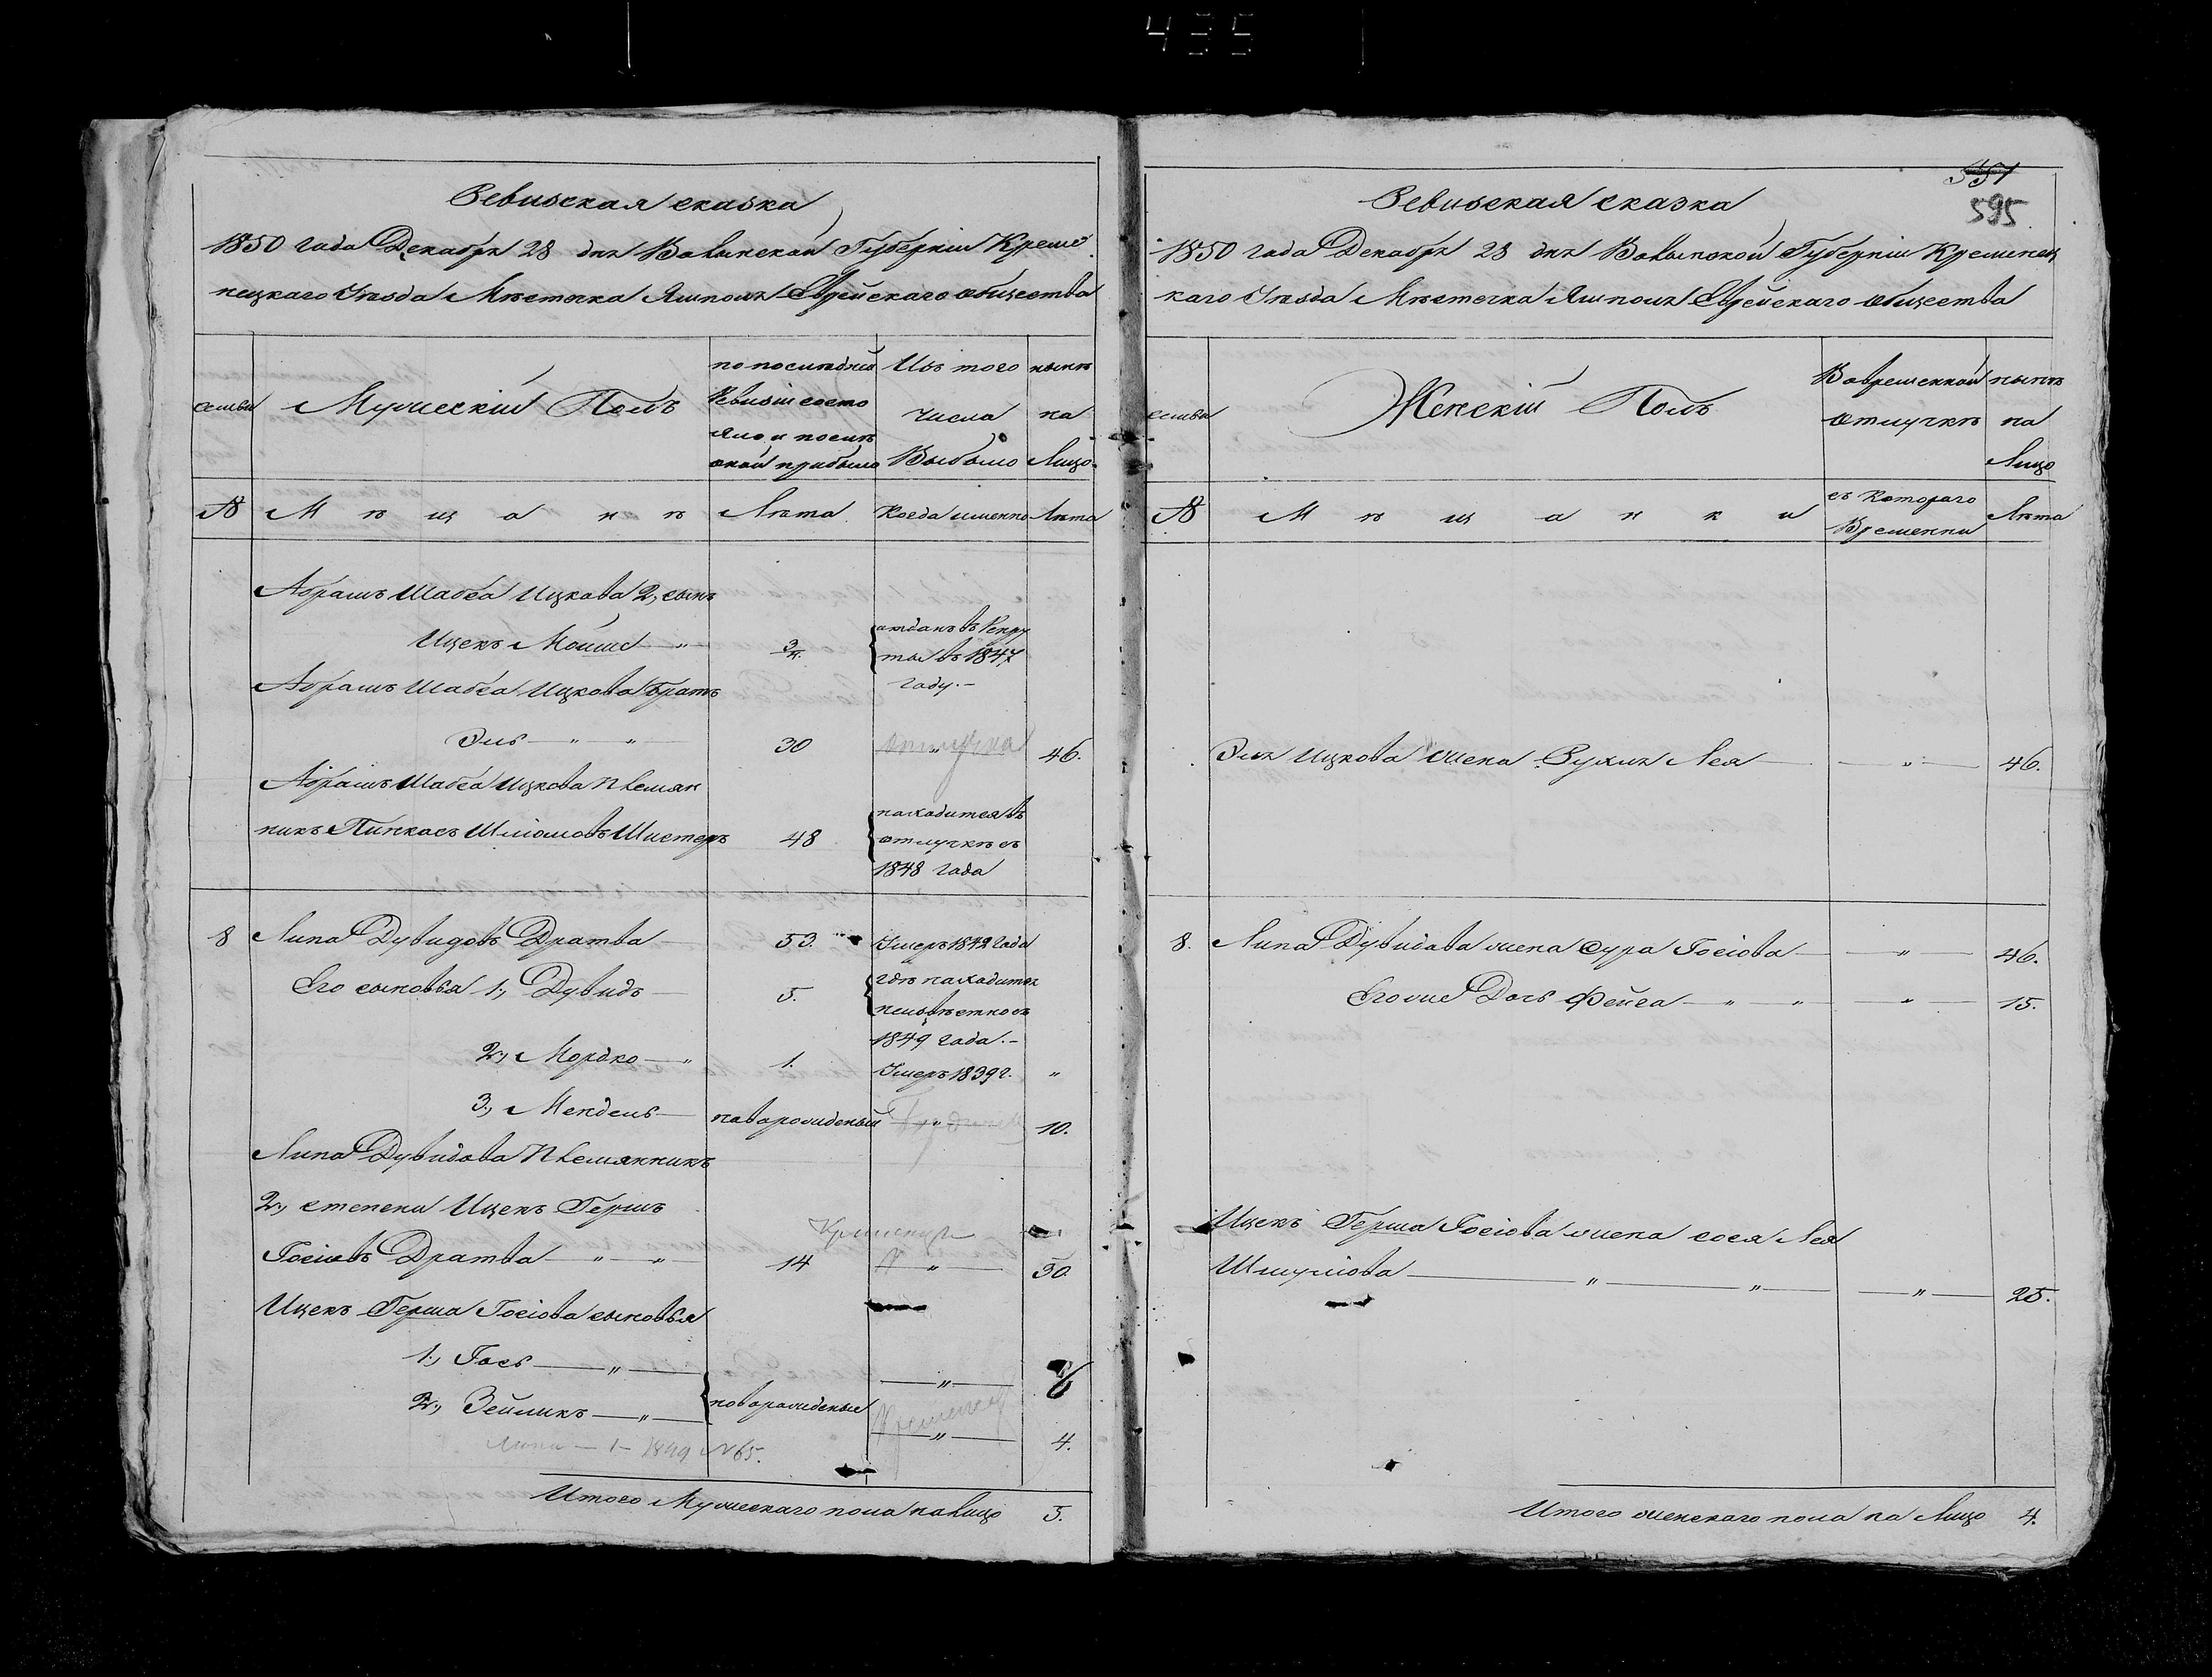 435
Ревизская сказка
1850 года Декабря 28 дня Волынской Губернии Креме
нецкаго Уезда Местечка Ямполя Еврейскаго общества
семьи
Мужескій Полъ
по последней
Ревизіи состо
яло и после
оной прибыло
Изъ того
числа
Выбыло
ныне
на
Лицо
№
Мещане
Лета
Когда именно
Лета
Абрамъ Шабса Ицкова 2, сынъ
Ицекъ Мойше — "
3/4.
отданъ в Рекру
ты въ 1847
году.—
Абрамъ Шабса Ицкова братъ
Эль — " — "
30
"
46.
Абрамъ Шабса Ицкова племян
никъ Пинкасъ Шліомовъ Шистеръ
48
находится въ
отлучке съ
1848 года
8
Липа Дувидовъ Дратва
53.
Умеръ 1849 года
Его сыновья 1., Дувидъ
5.
где находится
неизвестно съ
1849 года.—
2., Мордко — "
1.
Умеръ 1839 г.
"
3., Мендель
новорожденый
"
10.
Липа Дувидова племянникъ
2., степени Ицекъ Гершъ
Іосіовъ Дратва — " — "
14
"
30.
Ицекъ Герша Іосіова сыновья
1., Іось — "
"
2., Зейликъ — "
новорожденые
"
4.
Липа — 1 — 1849 №65.
Итого Мужескаго пола на лицо 5.
551
595
Ревизская сказка
1850 года Декабря 28 дня Волынской Губерніи Кременец
каго Уезда Местечка Ямполя Еврейскаго общества
семьи
Женскій Полъ
Во временной
отлучке
ныне
на
Лицо
№
Мещанки
съ котораго
Времени
Лета
Эля Ицкова жена Рухля Лея — " — 46.
8. Липа Дувидова жена Сура Іосіова — " — 46.
Егоже Дочь Фейга — " — " — " — 15.
Ицекъ Герша Іосіова жена Сося Лея
Шмуліова — " — " — " — 25.
Итого женскаго пола на Лицо 4.